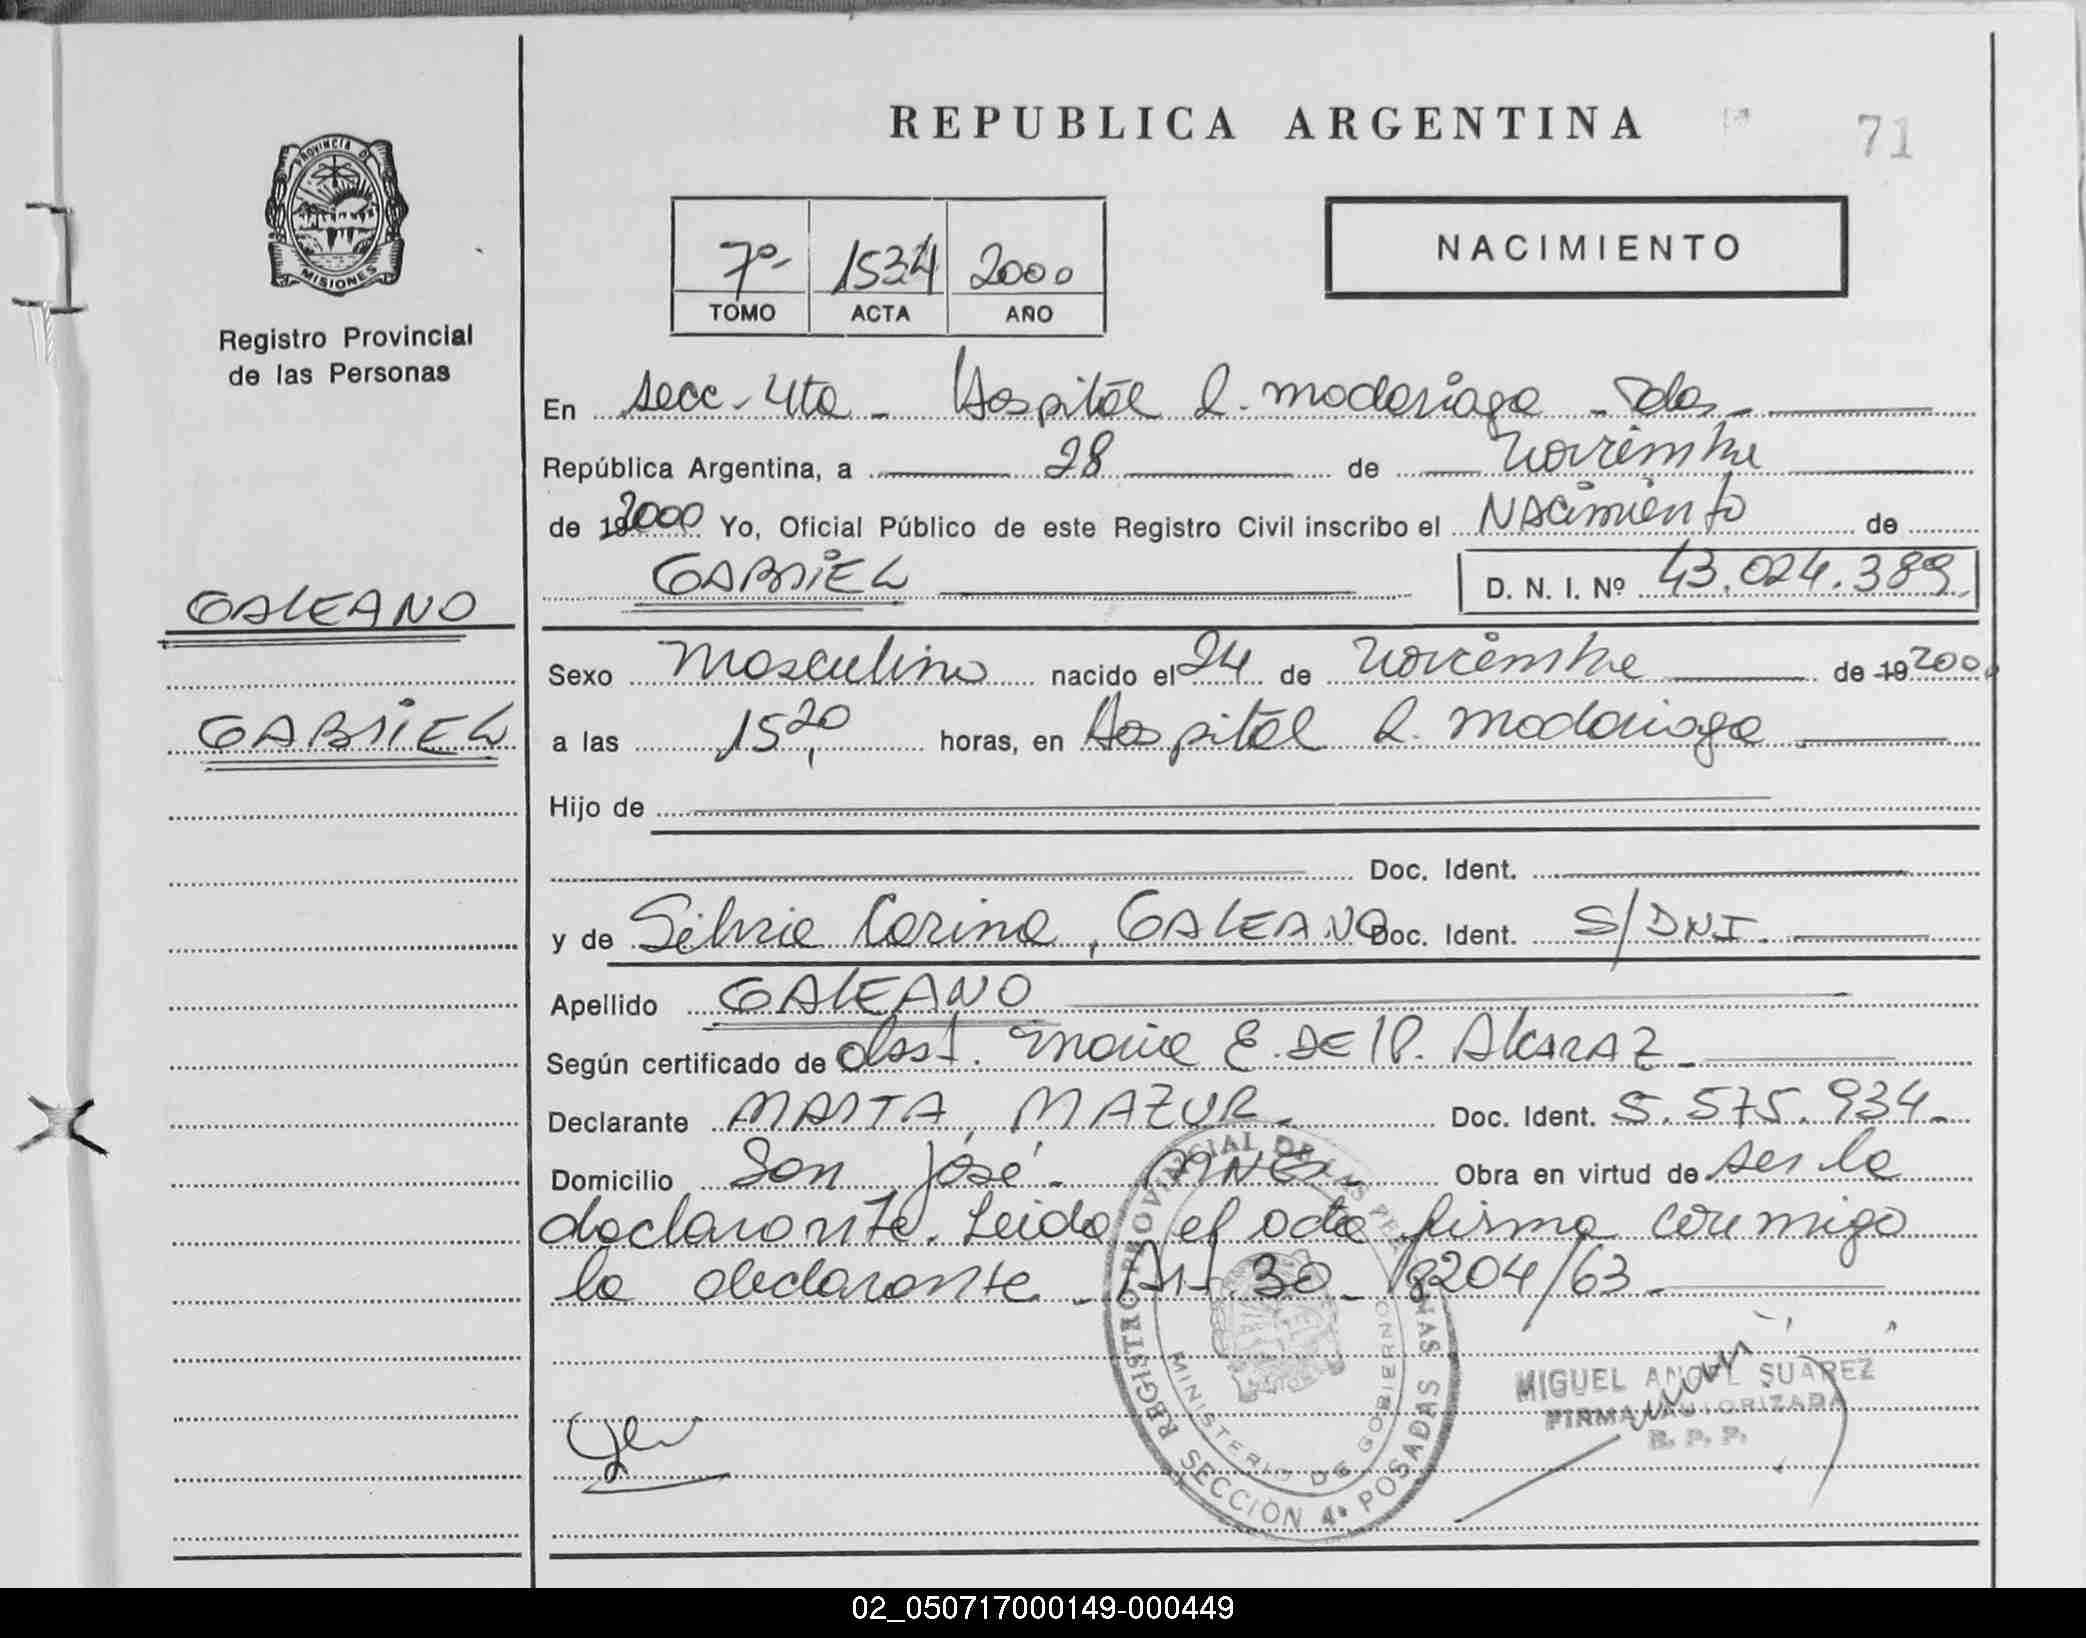 REPUBLICA ARGENTINA
71
PROVINCIA DE
MISIONES
Registro Provincial
de las Personas
7º 1534 2000
TOMO ACTA AÑO
NACIMIENTO
En Secc. 4ta - Hospital R. Madariaga - Pdas -
República Argentina, a 28 de Noviembre
de 192000 Yo, Oficial Público de este Registro Civil inscribo el NAcimiento de
GABRIEL D. N. I. Nº 43.024.389
GALEANO
Sexo Masculino nacido el 24 de Noviembre de 19 2000
GABRIEL
a las 15,20 horas, en Hospital R. Madariaga
Hijo de
Doc. Ident.
y de Silvia Corina, GALEANO Doc. Ident. S/DNI.
Apellido GALEANO
Según certificado de Obst. Maria E. DE P. AlcARAZ -
Declarante MARTA, MAZUR - Doc. Ident. 5.575.934-
Domicilio San José - Obra en virtud de ser la
declarante. Leida el acta firma conmigo
la declarante - Art 30 - 8204/63 -
REGISTRO PROVINCIAL DE LAS PERSONAS
MINISTERIO DE GOBIERNO
SECCION 4ª POSADAS
MIGUEL ANGEL SUAREZ
FIRMA AUTORIZADA
R. P. P.
02_050717000149-000449